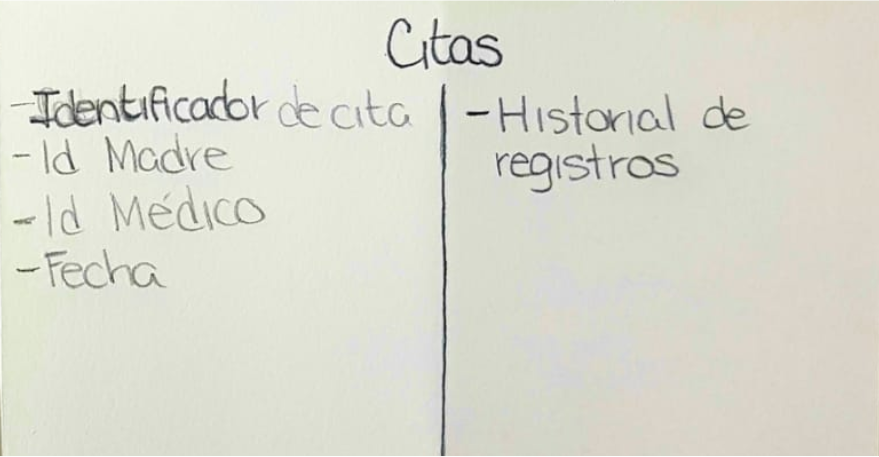 Citas
-Identificador de cita
-Id Madre
-Id Médico
-Fecha
-Historial de
registros